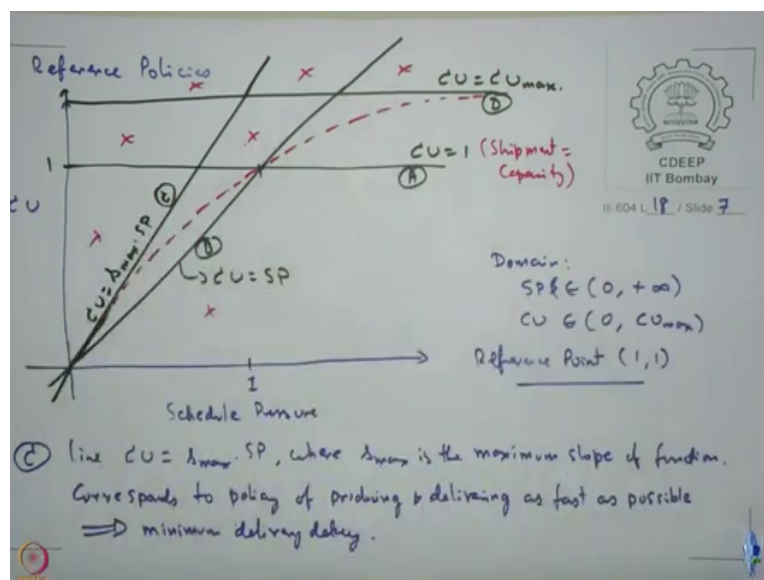 Reference Policies
CU = CUmax.
D
1
CU = 1 (Shipment = Capacity)
A
CU
C
CU = smax. SP
B
CU = SP
1
Schedule Pressure
CDEEP
IIT Bombay
604 L 18 / Slide 7
Domain:
SP ∈ (0, +∞)
CU ∈ (0, CUmax)
Reference Point (1,1)
C line CU = smax. SP, where smax is the maximum slope of function.
Corresponds to policy of producing & delivering as fast as possible
⇒ minimum delivery delay.